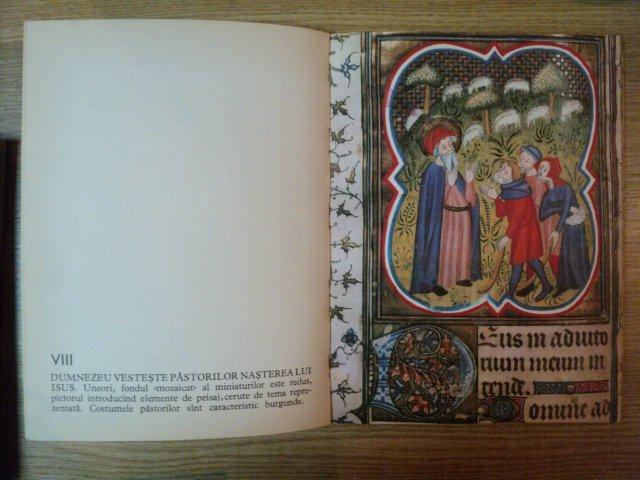 VIII
DUMNEZEU VESTEȘTE PĂSTORILOR NAȘTEREA LUI
ISUS. Uneori, fondul «mozaicat» al miniaturilor este redus,
pictorul introducînd elemente de peisaj, cerute de tema repre-
zentată. Costumele păstorilor sînt caracteristic burgunde.
Deus in adiuto
rium meum in
tende.
Domine ad